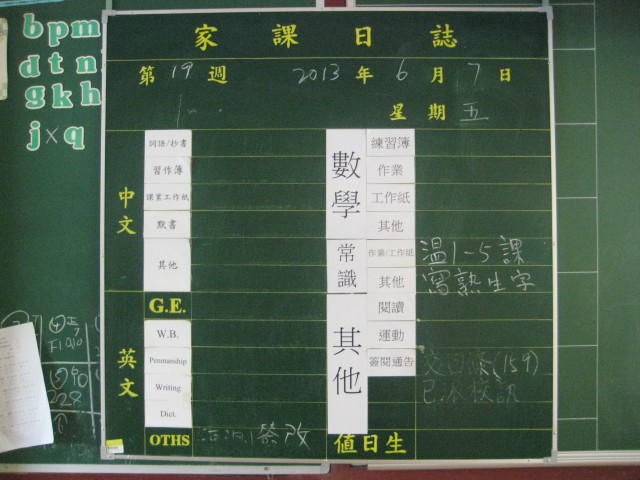 bpm
dtn
gkh
jxq
家課日誌
第19週 2013年6月7日
星期五
中文
詞語/抄書
習作簿
課業工作紙
默書
其他
G.E.
英文
W.B.
Penmanship
Writing
Dict.
OTHS
簽改
數學
練習簿
作業
工作紙
其他
常識
作業/工作紙 溫1-5課
其他 寫熟生字
其他
閱讀
運動
簽閱通告 交回條(159)
值日生